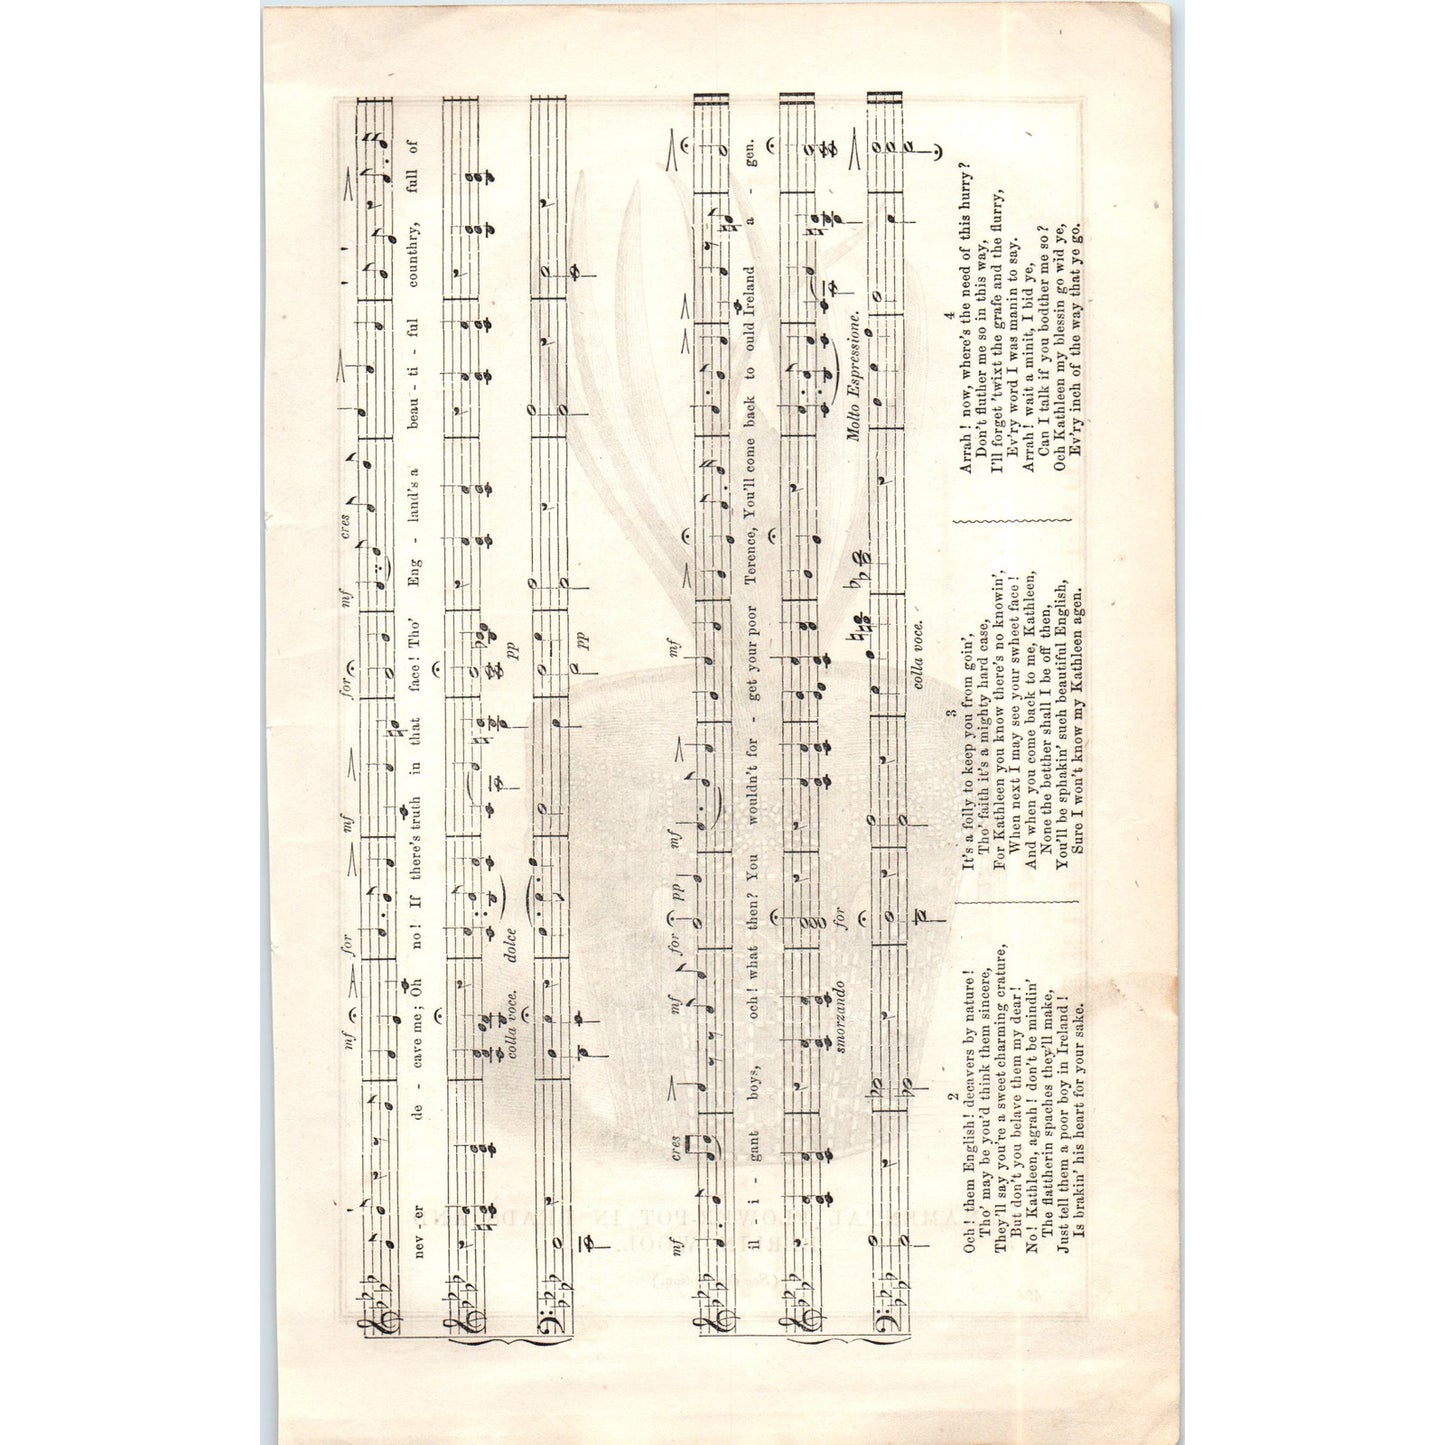 mf for mf mf for mf cres
nev - er de - cave me; Oh no! If there's truth in that face! Tho' Eng - land's a beau - ti - ful counthry, full of
colla voce. dolce pp
pp
mf cres mf for pp mf mf
il - i - gant boys, och! what then? You wouldn't for - get your poor Terence, You'll come back to ould Ireland a - gen.
smorzando for Molto Espressione.
colla voce.
2
Och! them English! decavers by nature!
Tho' may be you'd think them sincere,
They'll say you're a sweet charming crature,
But don't you belave them my dear!
No! Kathleen, agrah! don't be mindin'
The flattherin spaches they'll make,
Just tell them a poor boy in Ireland!
Is brakin' his heart for your sake.
3
It's a folly to keep you from goin',
Tho' faith it's a mighty hard case,
For Kathleen you know there's no knowin',
When next I may see your swheet face!
And when you come back to me, Kathleen,
None the betther shall I be off then,
You'll be sphakin' such beautiful English,
Sure I won't know my Kathleen agen.
4
Arrah! now, where's the need of this hurry?
Don't fluther me so in this way,
I'll forget 'twixt the grafe and the flurry,
Ev'ry word I was manin to say.
Arrah! wait a minit, I bid ye,
Can I talk if you bodther me so?
Och Kathleen my blessin go wid ye,
Ev'ry inch of the way that ye go.